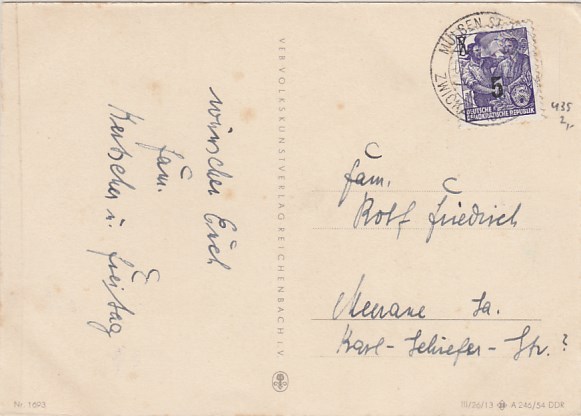 wünschen Euch
Fam.
Kertscher u. Freitag
VEB VOLKSKUNSTVERLAG REICHENBACH I. V.
MÜLSEN ST.
ZWICK
5
DEUTSCHE
DEMOKRATISCHE REPUBLIK
435
2,-
Fam.
Rolf Friedrich
Meerane Sa.
Karl-Schiefer-Str. ?
Nr. 1693
III/26/13 A 246/54 DDR